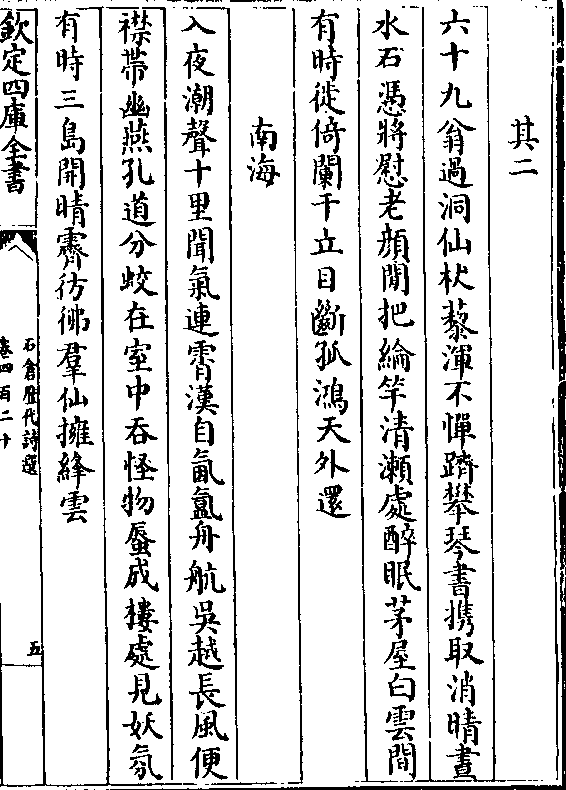 其二
六十九翁過洞仙杖藜渾不憚躋攀琴書携取消晴晝
水石憑將慰老顔閒把綸竿清瀬處醉眠茅屋白雲間
有時徙倚闌干立目斷孤鴻天外還
南海
入夜潮聲十里聞氣連霄漢自氤氲舟航吳越長風便
襟帶幽燕孔道分蛟在室中吞怪物蜃成樓處見妖氛
有時三島開晴霽彷彿羣仙擁絳雲
欽定四庫全書
石倉歷代詩選
卷四百二十
五